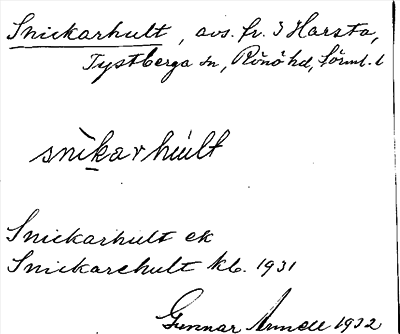 Snickarhult, avs. fr. 3 Harsta,
Tystberga sn, Rönö hd, Sörml. l
snìkarhúlt
Snickarhult ek
Snickarehult kb. 1931
Gunnar Annell 1932